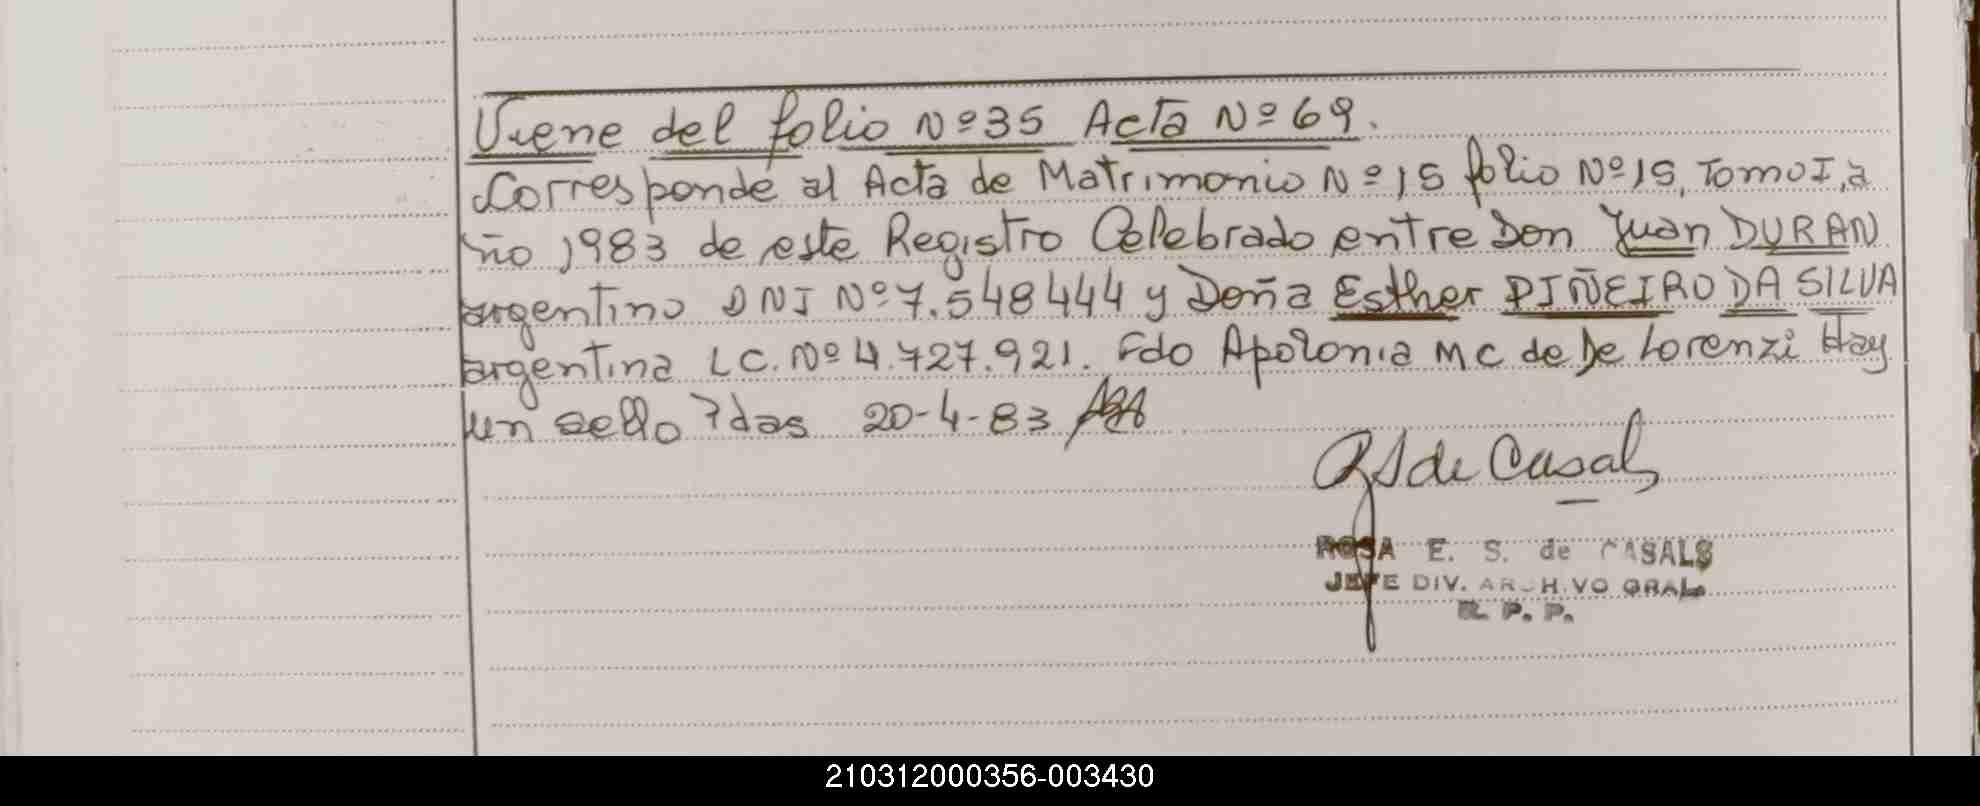 Viene del folio Nº 35 Acta Nº 69.
Corresponde al Acta de Matrimonio Nº 15 folio Nº 15, Tomo I, a
ño 1983 de este Registro Celebrado entre Don Juan DURAN
argentino DNI Nº 7.548444 y Doña Esther PIÑEIRO DA SILVA
argentina LC. Nº 4.727.921. Fdo Apolonia MC de De Lorenzi Hay
un sello 20-4-83
RS de Casals
ROSA E. S. de CASALS
JEFE DIV. ARCHIVO GRAL
R. P. P.
210312000356-003430